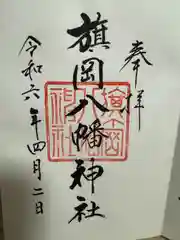 奉拝
旗岡八幡神社
令和六年四月二日